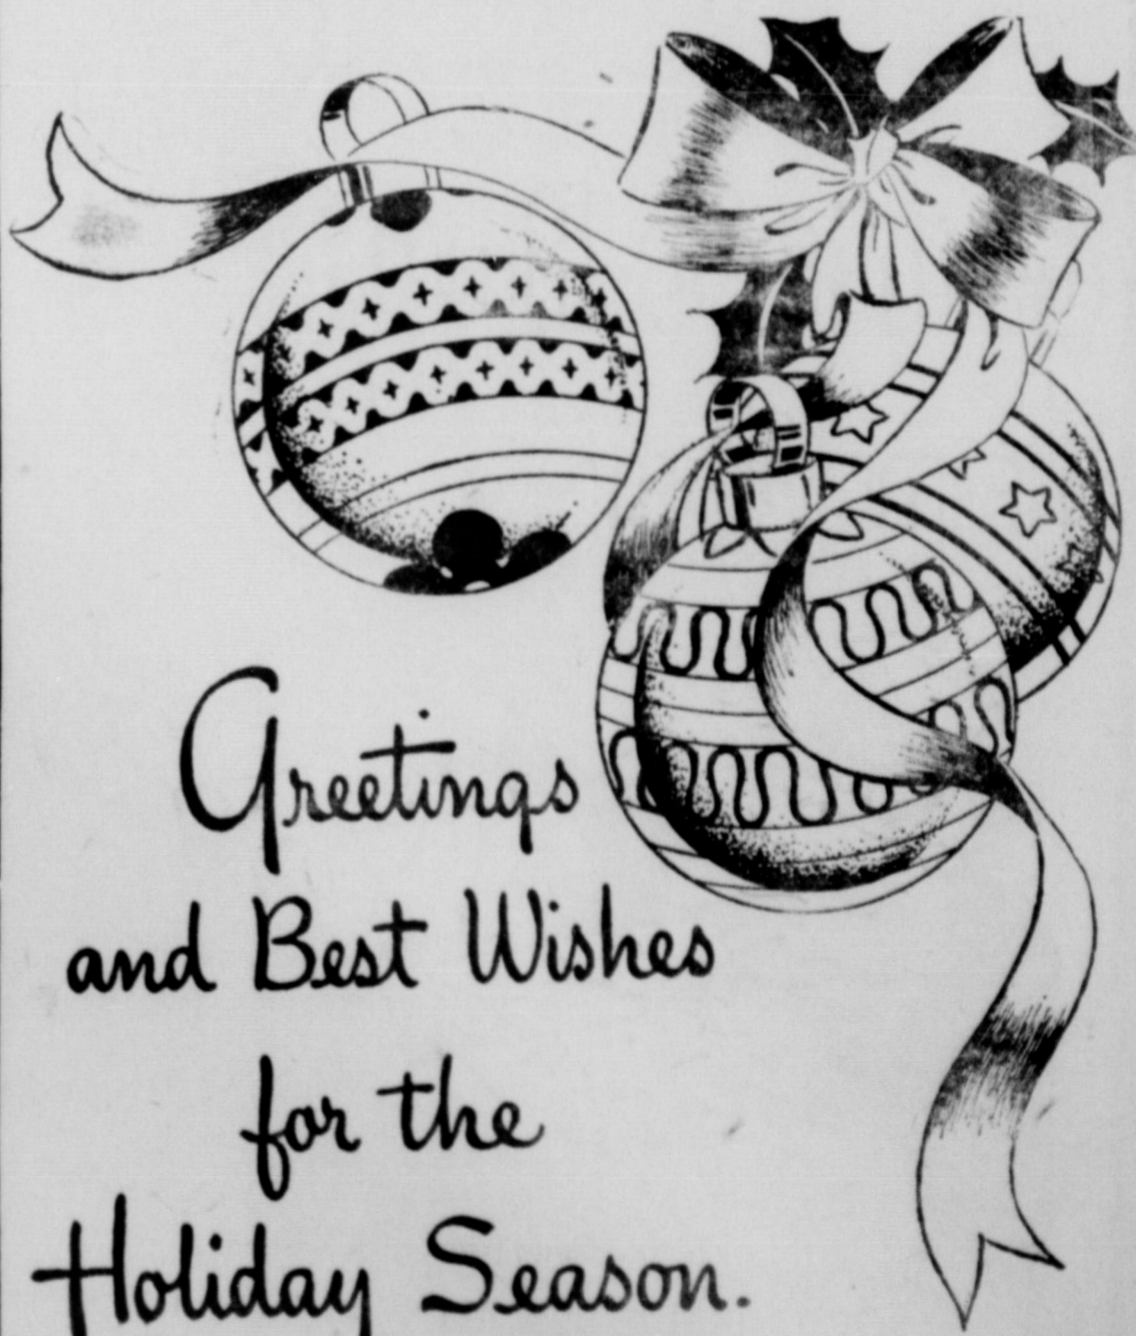 Greetings
and Best Wishes
for the
Holiday Season.